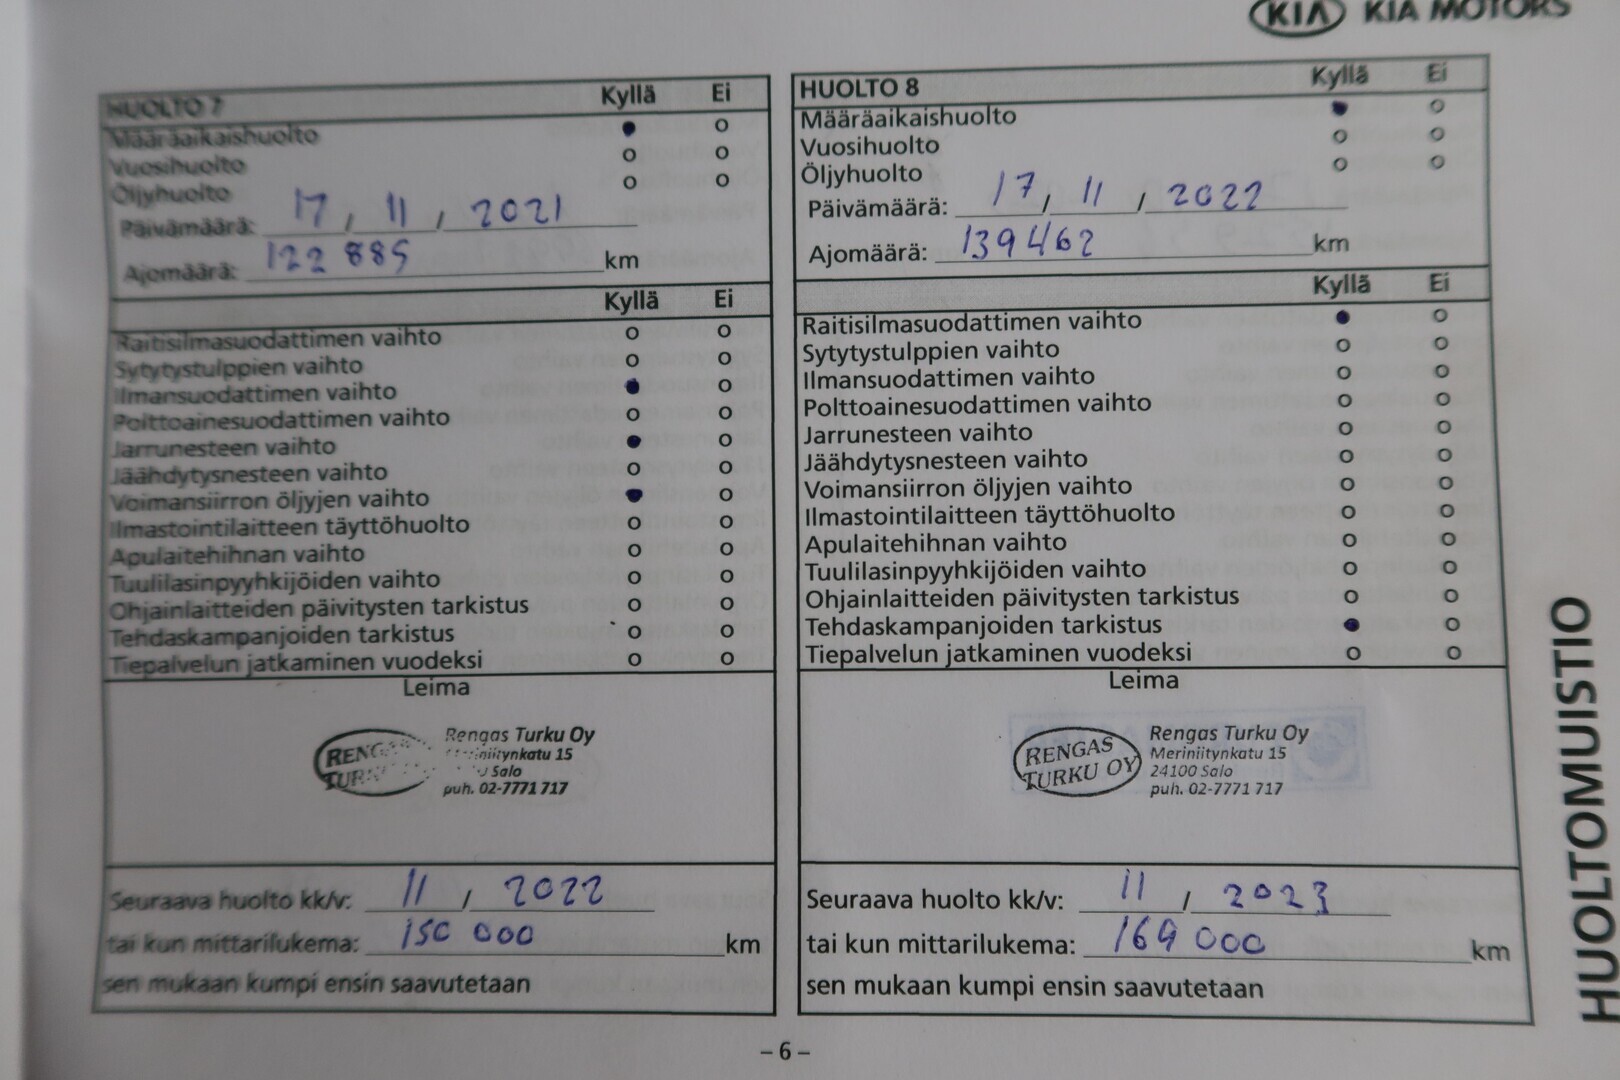 KIA KIA MOTORS
HUOLTO 7 Kyllä Ei
Määräaikaishuolto
Vuosihuolto
Öljyhuolto
Päivämäärä: 17 / 11 / 2021
Ajomäärä: 122 885 km
Kyllä Ei
Raitisilmasuodattimen vaihto
Sytytystulppien vaihto
Ilmansuodattimen vaihto
Polttoainesuodattimen vaihto
Jarrunesteen vaihto
Jäähdytysnesteen vaihto
Voimansiirron öljyjen vaihto
Ilmastointilaitteen täyttöhuolto
Apulaitehihnan vaihto
Tuulilasinpyyhkijöiden vaihto
Ohjainlaitteiden päivitysten tarkistus
Tehdaskampanjoiden tarkistus
Tiepalvelun jatkaminen vuodeksi
Leima
Rengas Turku Oy
15
Salo
puh. 02-7771 717
Seuraava huolto kk/v: 11 / 2022
tai kun mittarilukema: 150 000 km
sen mukaan kumpi ensin saavutetaan
HUOLTO 8 Kyllä Ei
Määräaikaishuolto
Vuosihuolto
Öljyhuolto
Päivämäärä: 17 / 11 / 2022
Ajomäärä: 139462 km
Kyllä Ei
Raitisilmasuodattimen vaihto
Sytytystulppien vaihto
Ilmansuodattimen vaihto
Polttoainesuodattimen vaihto
Jarrunesteen vaihto
Jäähdytysnesteen vaihto
Voimansiirron öljyjen vaihto
Ilmastointilaitteen täyttöhuolto
Apulaitehihnan vaihto
Tuulilasinpyyhkijöiden vaihto
Ohjainlaitteiden päivitysten tarkistus
Tehdaskampanjoiden tarkistus
Tiepalvelun jatkaminen vuodeksi
Leima
RENGAS
TURKU OY
Rengas Turku Oy
Meriniitynkatu 15
24100 Salo
puh. 02-7771 717
Seuraava huolto kk/v: 11 / 2023
tai kun mittarilukema: 169 000 km
sen mukaan kumpi ensin saavutetaan
HUOLTOMUISTIO
– 6 –